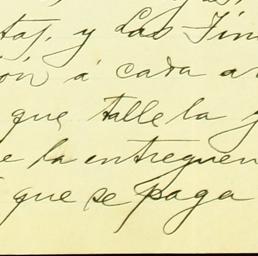 y Las
ón á cada a
que, talle la y
e la entreguen
que se paga